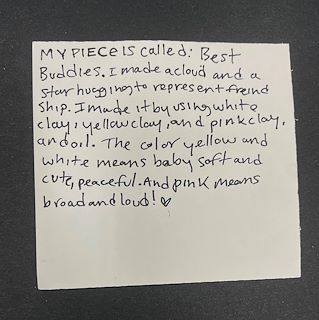 MY PIECE IS called: Best
Buddies. I made a cloud and a
star hugging to represent freind
ship. I made it by using white
clay, yellow clay, and pink clay,
and oil. The color yellow and
white means baby soft and
cute, peaceful. And pink means
broad and loud! ♡